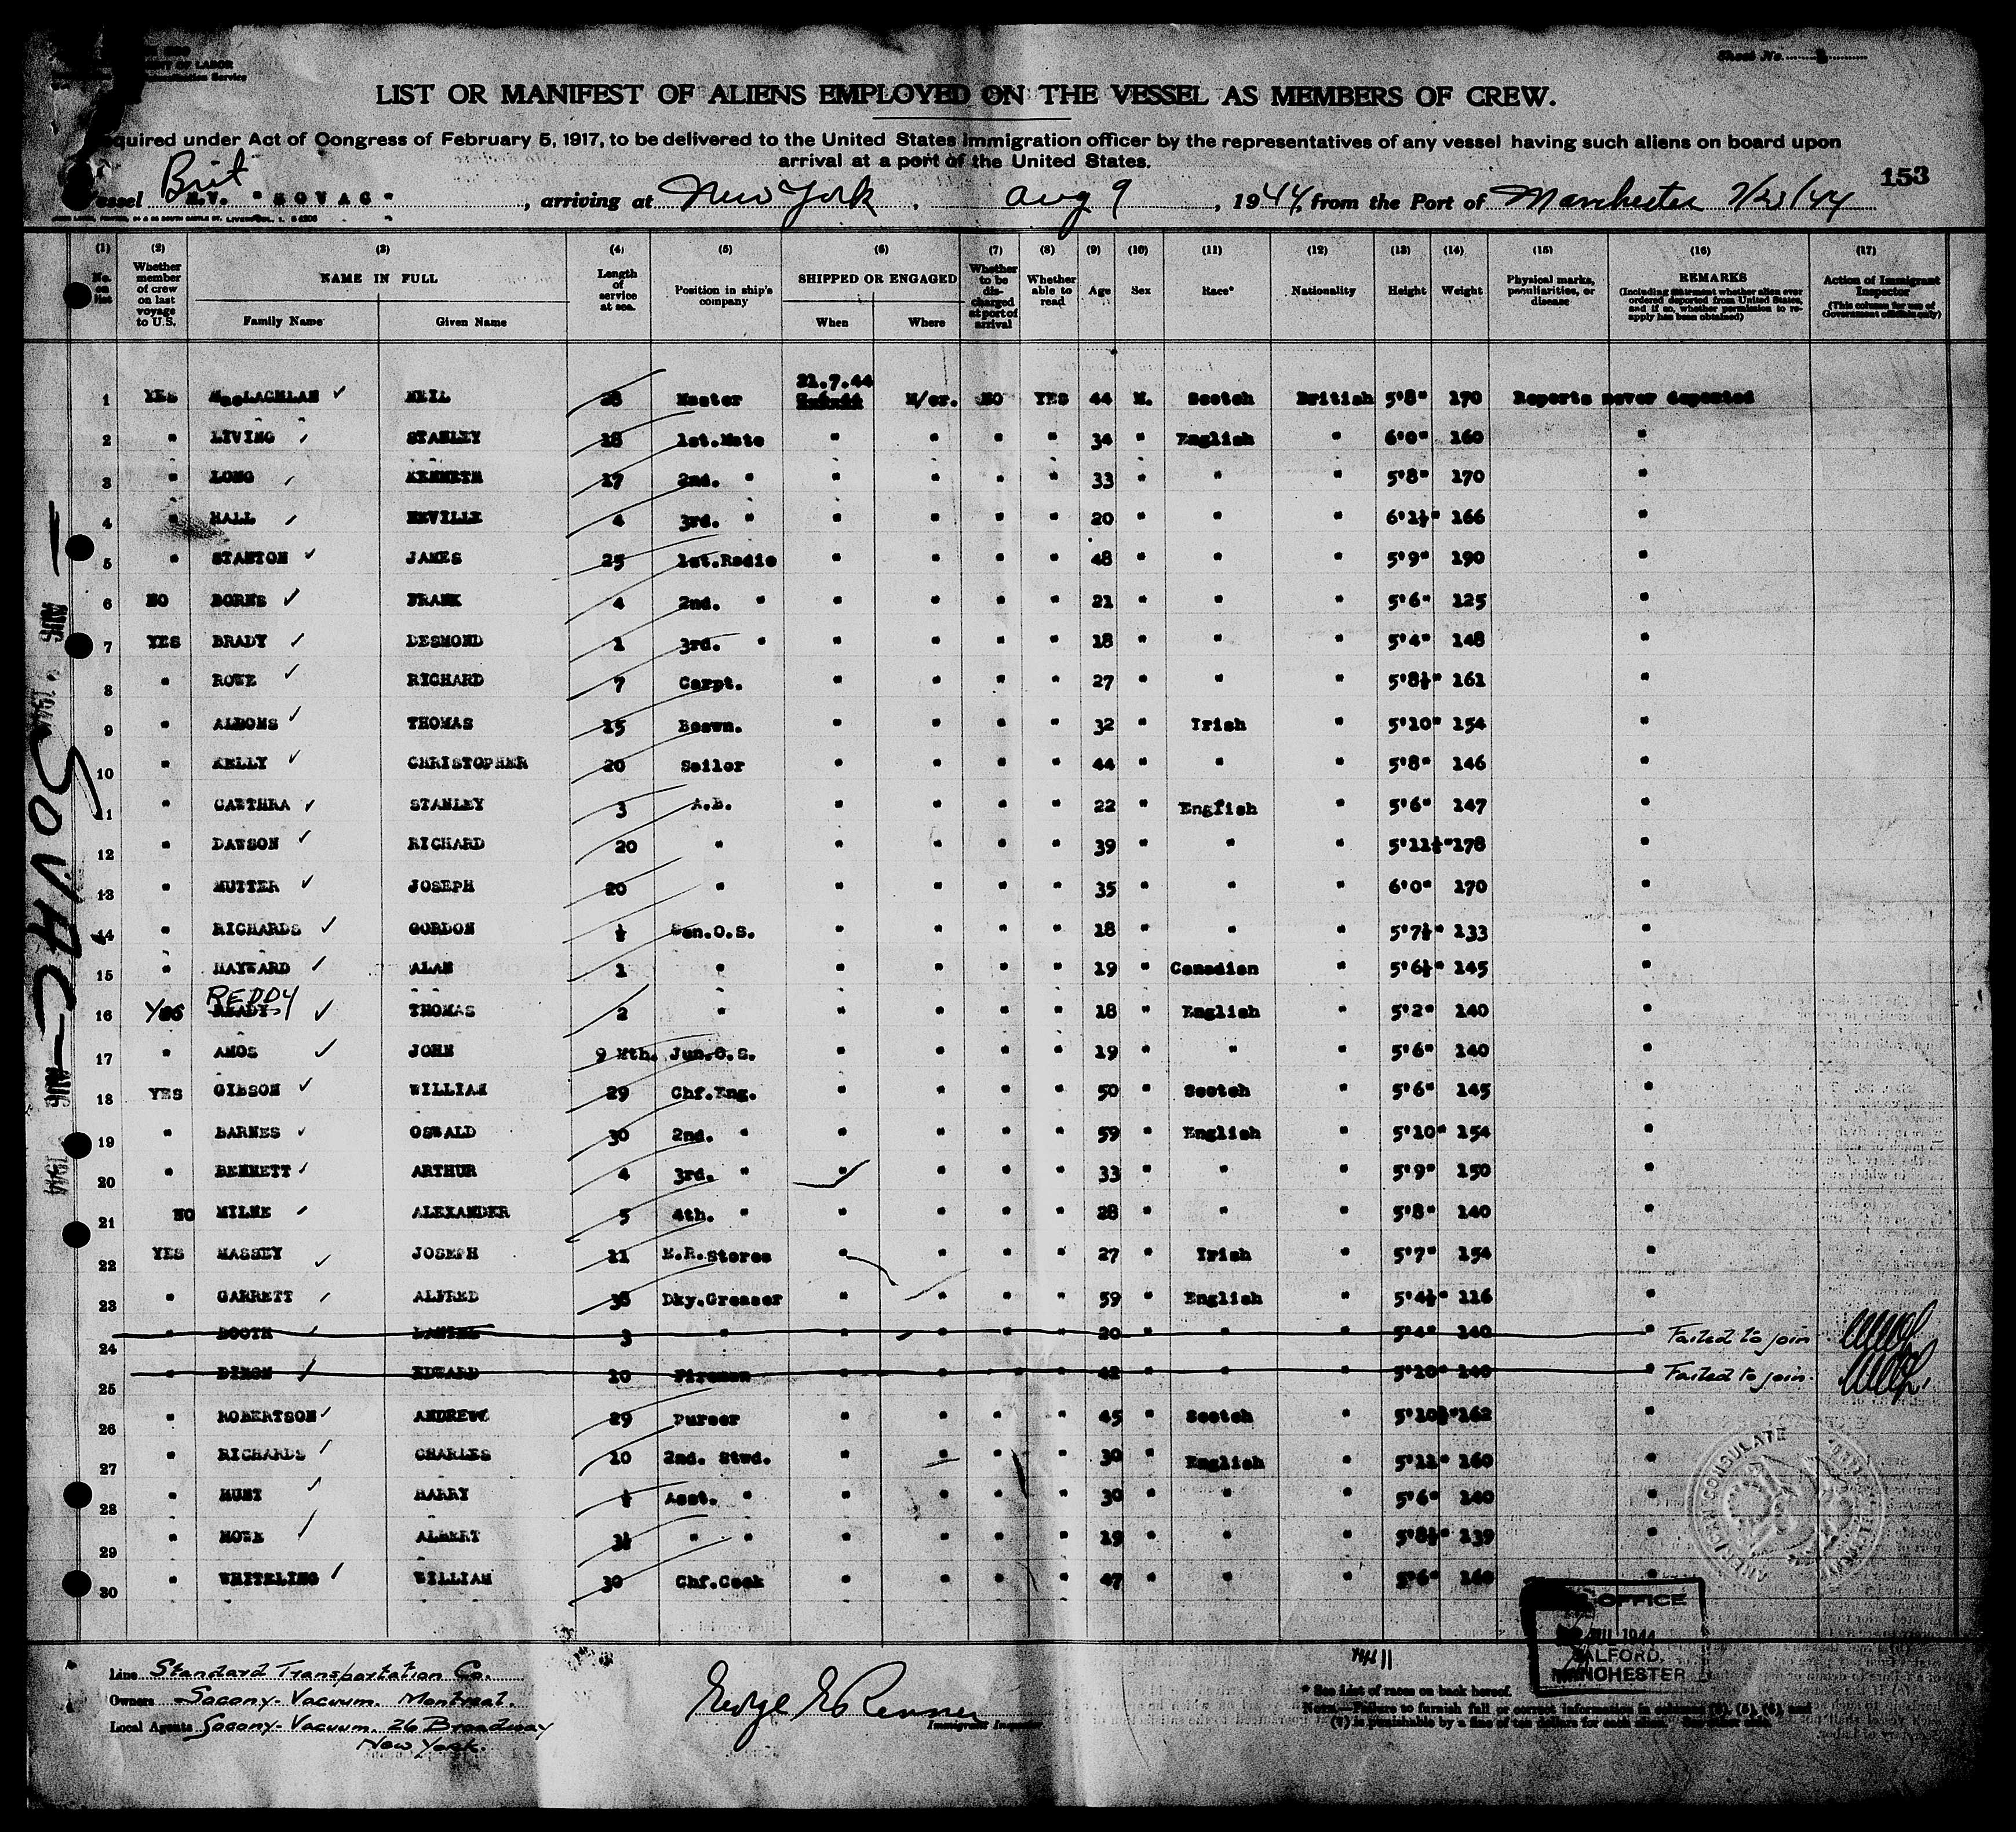 Sheet No.
LIST OR MANIFEST OF ALIENS EMPLOYED ON THE VESSEL AS MEMBERS OF CREW.
quired under Act of Congress of February 5, 1917, to be delivered to the United States Immigration officer by the representatives of any vessel having such aliens on board upon
arrival at a port of the United States.
153
Brit
essel M.V. "SOVAC", arriving at New York, Aug 9, 1944, from the Port of Manchester 7/23/44
(1) (2) (3) (4) (5) (6) (7) (8) (9) (10) (11) (12) (13) (14) (15) (16) (17)
No. on list
Whether member of crew on last voyage to U.S.
NAME IN FULL
Family Name
Given Name
Length of service at sea.
Position in ship's company
SHIPPED OR ENGAGED
When
Where
Whether to be discharged at port of arrival
Whether able to read
Age
Sex
Race*
Nationality
Height
Weight
Physical marks, peculiarities, or disease
REMARKS
(Including statement whether alien ever ordered deported from United States, and if so, whether permission to reapply has been obtained)
Action of Immigrant Inspector
(This column for use of Government officials only)
1 YES MacLACHLAN NEIL 28 Master 21.7.44 M/er. NO YES 44 M. Scotch British 5'8" 170 Reports never deported
2 " LIVING STANLEY 18 1st.Mate " " " " 34 " English " 6'0" 160 "
3 " LONG KENNETH 17 2nd. " " " " " 33 " " " 5'8" 170 "
4 " HALL NEVILLE 4 3rd. " " " " " 20 " " " 6'1½" 166 "
5 " STANTON JAMES 25 1st.Radio " " " " 48 " " " 5'9" 190 "
6 NO BORNS FRANK 4 2nd. " " " " " 21 " " " 5'6" 125 "
7 YES BRADY DESMOND 1 3rd. " " " " " 18 " " " 5'4" 148 "
8 " ROWE RICHARD 7 Carpt. " " " " 27 " " " 5'8½" 161 "
9 " ALDONS THOMAS 15 Boswn. " " " " 32 " Irish " 5'10" 154 "
10 " KELLY CHRISTOPHER 20 Sailor " " " " 44 " " " 5'8" 146 "
11 " CAWTHRA STANLEY 3 A.B. " " " " 22 " English " 5'6" 147 "
12 " DAWSON RICHARD 20 " " " " " 39 " " " 5'11½" 178 "
13 " MUTTER JOSEPH 20 " " " " " 35 " " " 6'0" 170 "
14 " RICHARDS GORDON ½ Sen.O.S. " " " " 18 " " " 5'7½" 133 "
15 " HAYWARD ALAN 1 " " " " " 19 " Canadian " 5'6½" 145 "
REDDY
16 Yes READY THOMAS 2 " " " " " 18 " English " 5'2" 140 "
17 " AMOS JOHN 9 Mth. Jun.O.S. " " " " 19 " " " 5'6" 140 "
18 YES GIBSON WILLIAM 29 Chf.Eng. " " " " 50 " Scotch " 5'6" 145 "
19 " BARNES OSWALD 30 2nd. " " " " " 59 " English " 5'10" 154 "
20 " BENNETT ARTHUR 4 3rd. " " " " " 33 " " " 5'9" 150 "
21 NO MILNE ALEXANDER 5 4th. " " " " " 28 " " " 5'8" 140 "
22 YES MASSEY JOSEPH 11 E.R.Stores " " " " 27 " Irish " 5'7" 154 "
23 " GARRETT ALFRED 38 Dky.Greaser " " " " 59 " English " 5'4½" 116 "
24 " BOOTH DANIEL 3 " " " " " 20 " " " 5'4" 140 " Failed to join
25 " DIXON EDWARD 10 Fireman " " " " 42 " " " 5'10" 140 " Failed to join.
26 " ROBERTSON ANDREW 29 Purser " " " " 45 " Scotch " 5'10½" 162 "
27 " RICHARDS CHARLES 10 2nd. Stwd. " " " " 30 " English " 5'11" 160 "
28 " HUNT HARRY ½ Asst. " " " " " 30 " " " 5'6" 140 "
29 " HOWE ALBERT 3½ " " " " " " 19 " " " 5'8½" 139 "
30 " WHITELING WILLIAM 30 Chf.Cook " " " " 47 " " " 5'6" 160 "
AUG 1944 SOVAC — AUG 1944
AMERICAN CONSULATE
OFFICE
1944
SALFORD.
MANCHESTER
Line Standard Transportation Co.
Owners Socony-Vacuum. Montreal.
Local Agents Socony-Vacuum. 26 Broadway
New York.
George E Renner
Immigrant Inspector
* See List of races on back hereof.
NOTE.—Failure to furnish full or correct information in columns (2), (5), (6), and
(7) is punishable by a fine of ten dollars for each alien. See other side.